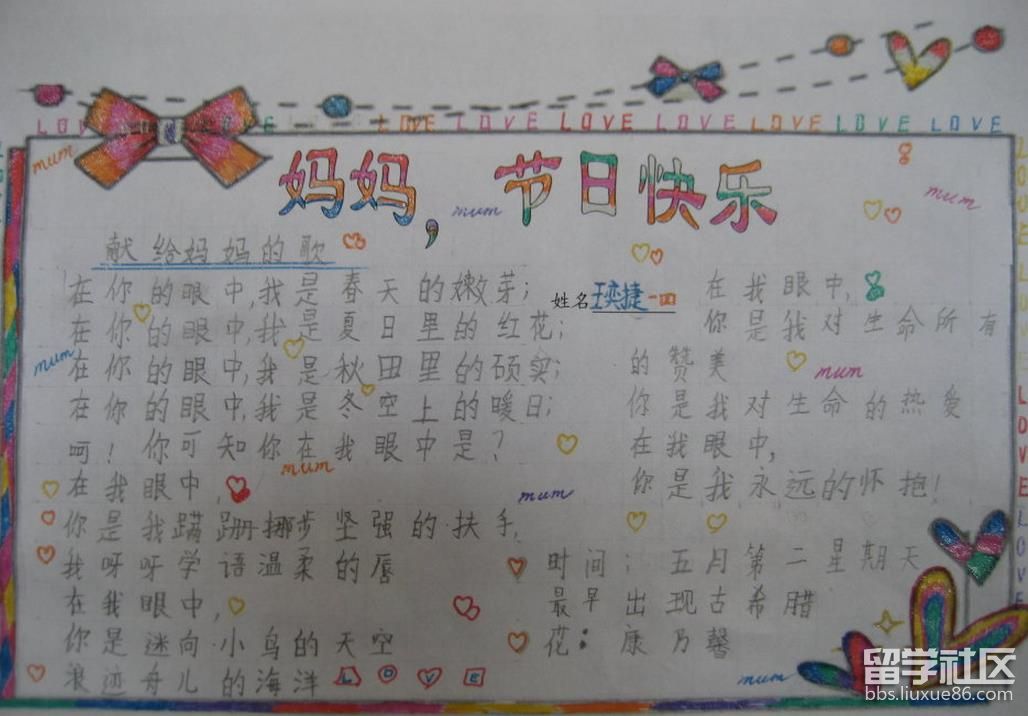 LOVE LOVE LOVE LOVE LOVE LOVE LOVE
mum
妈妈，节日快乐
mum
mum
献给妈妈的歌
在你的眼中,我是春天的嫩芽;
在你的眼中,我是夏日里的红花;
在你的眼中,我是秋田里的硕实;
在你的眼中,我是冬空上的暖日;
呵!你可知你在我眼中是?
在我眼中,
你是我蹒跚挪步坚强的扶手,
我呀呀学语温柔的唇
在我眼中,
你是迷向小鸟的天空
浪迹舟儿的海洋 LOVE
mum
mum
姓名 王奕捷 一四
在我眼中,
你是我对生命所有
的赞美
mum
你是我对生命的热爱
在我眼中,
你是我永远的怀抱!
mum
时间: 五月第二星期天
最早出现古希腊
花:康乃馨
mum
LOVE
LOVE
留学社区
bbs.liuxue86.com